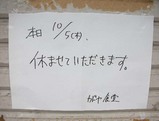 本日 10/5(木)、
休ませていただきます。
食堂